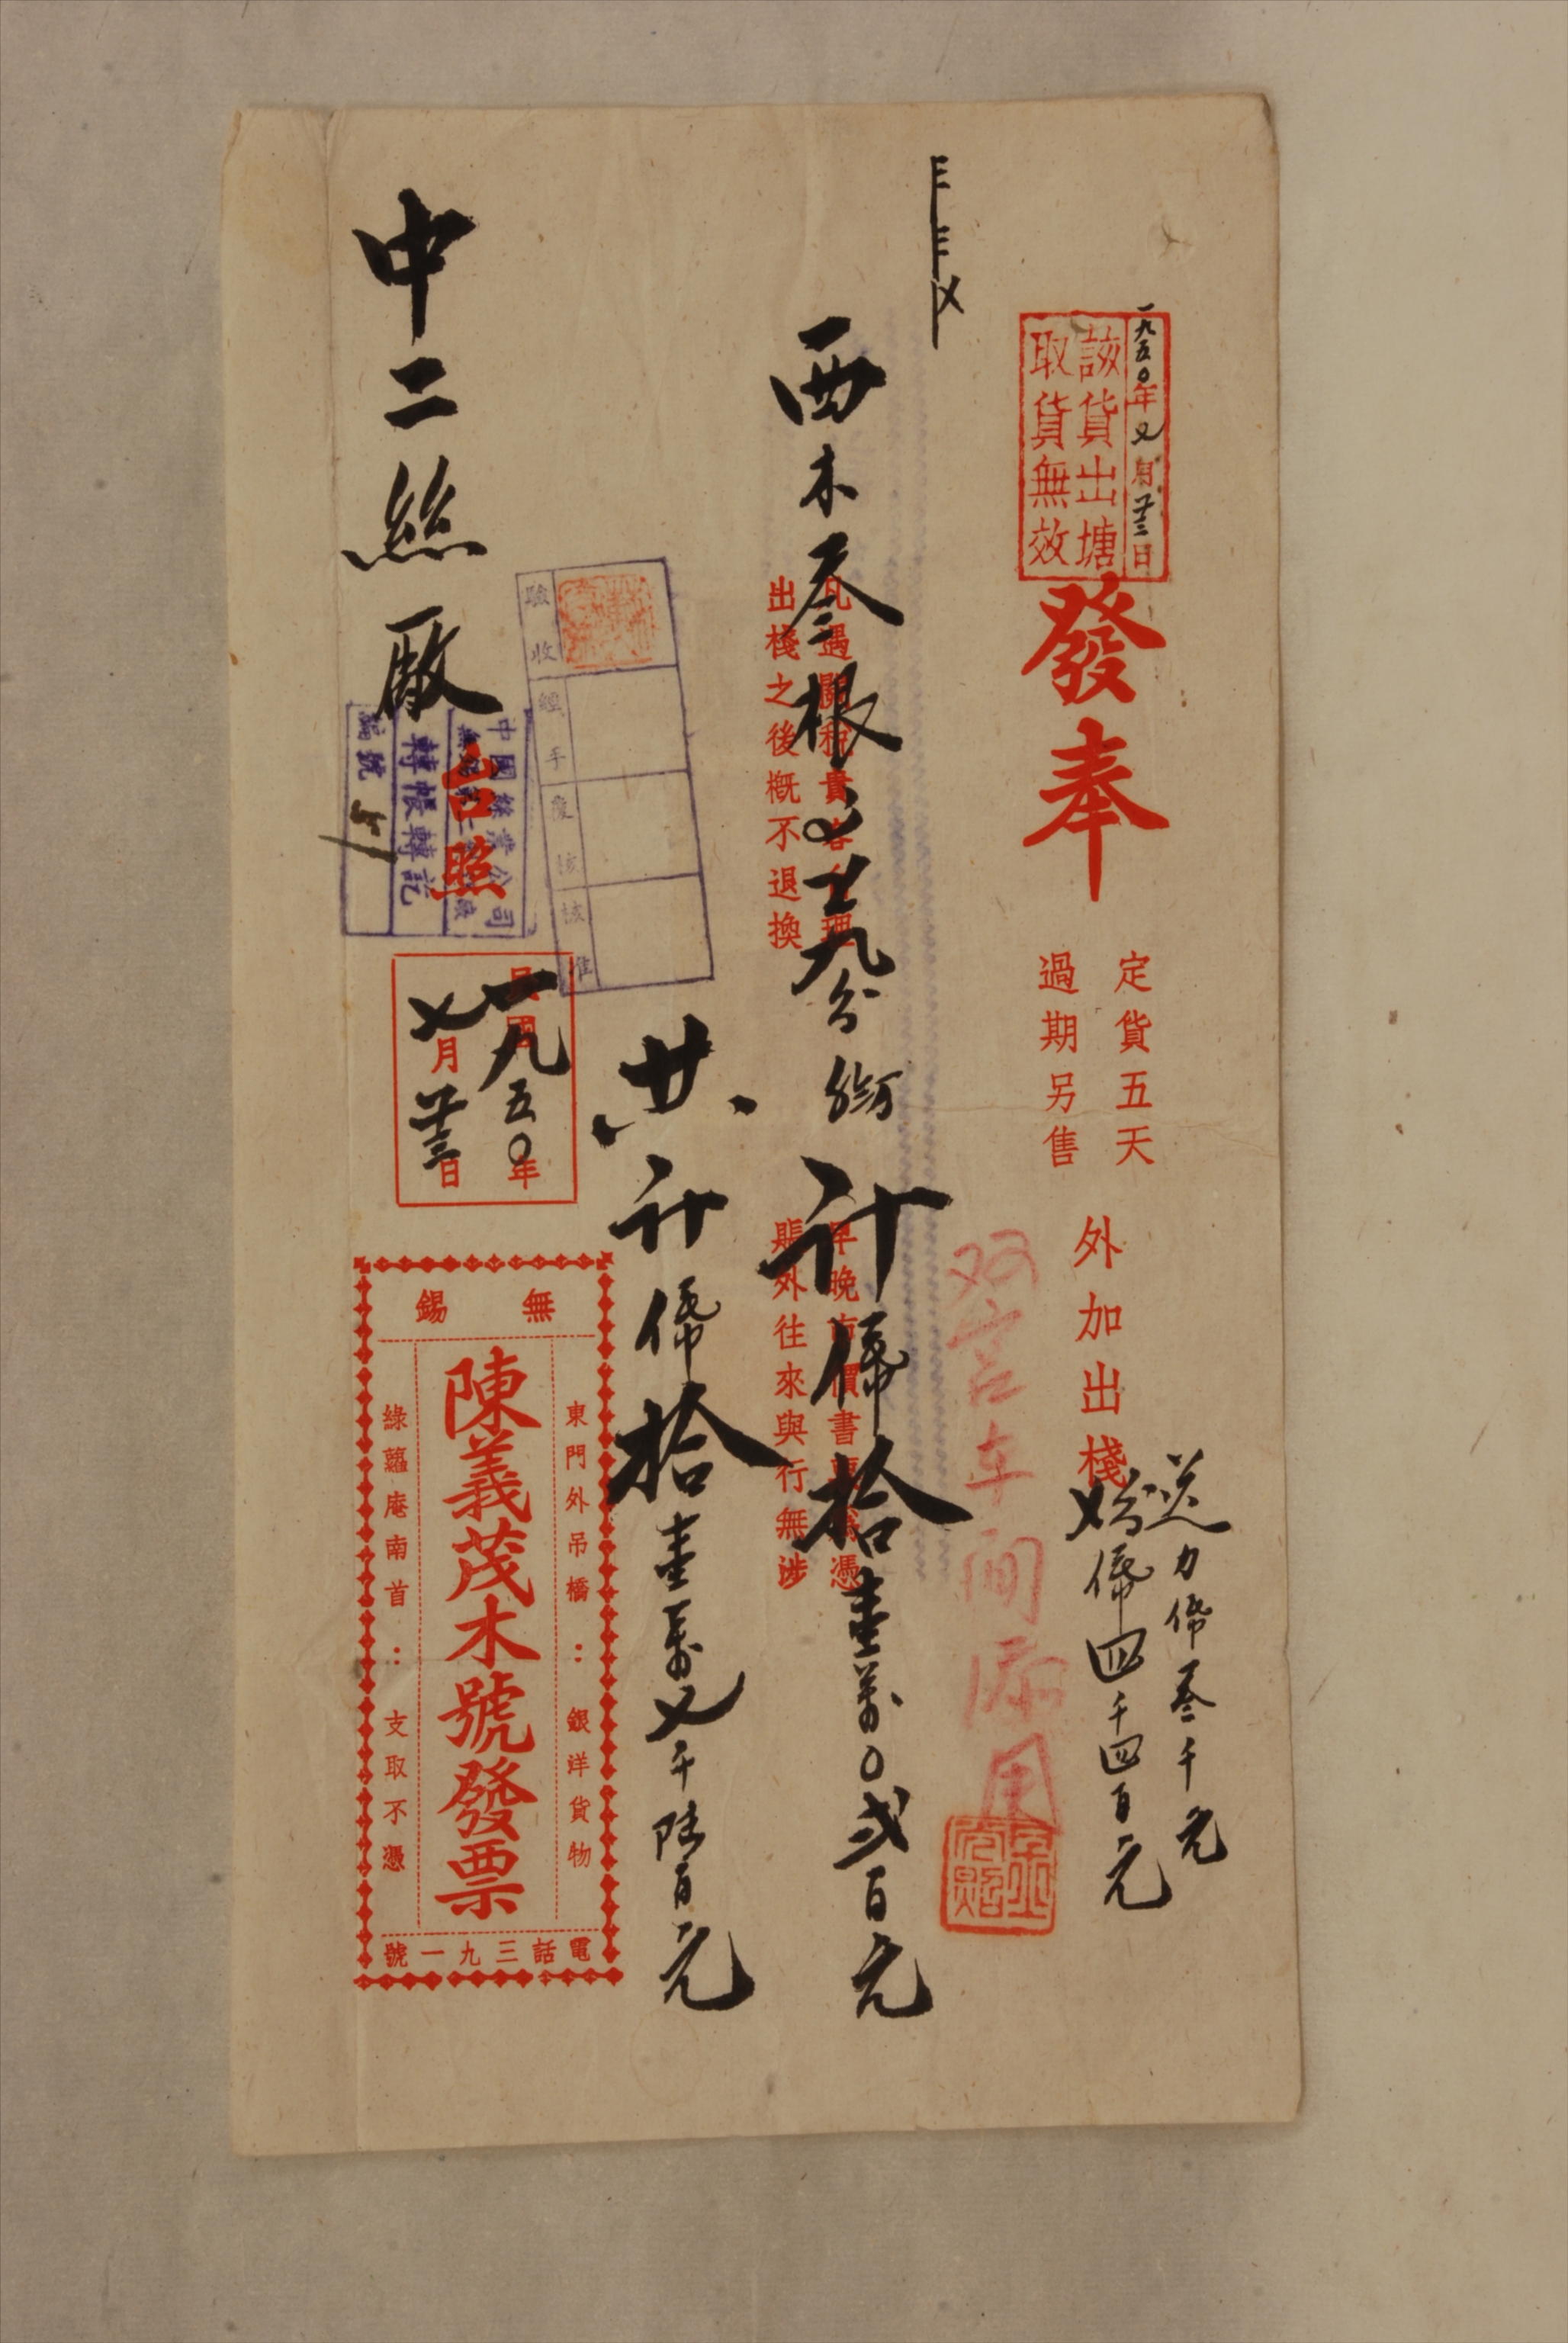 一九五〇年七月廿三日
該貨出塘
取貨無效
發奉
定貨五天
過期另售
外加出棧
送力幣叁千元
幣四千四百元
双宫车间原用
西木叁根
計幣拾壹萬〇弍百元
凡遇關稅貴客自理
出棧之後概不退換
賬外往來與行無涉
共計幣拾壹萬七千陸百元
驗收
經手
覆核
核准
中二絲廠
台照
中國絲業公司
轉帳轉記
編號
民國一九五〇年
七月廿三日
無錫
東門外吊橋：銀洋貨物
陳義茂木號發票
綠蘿庵南首：支取不憑
電話三九一號